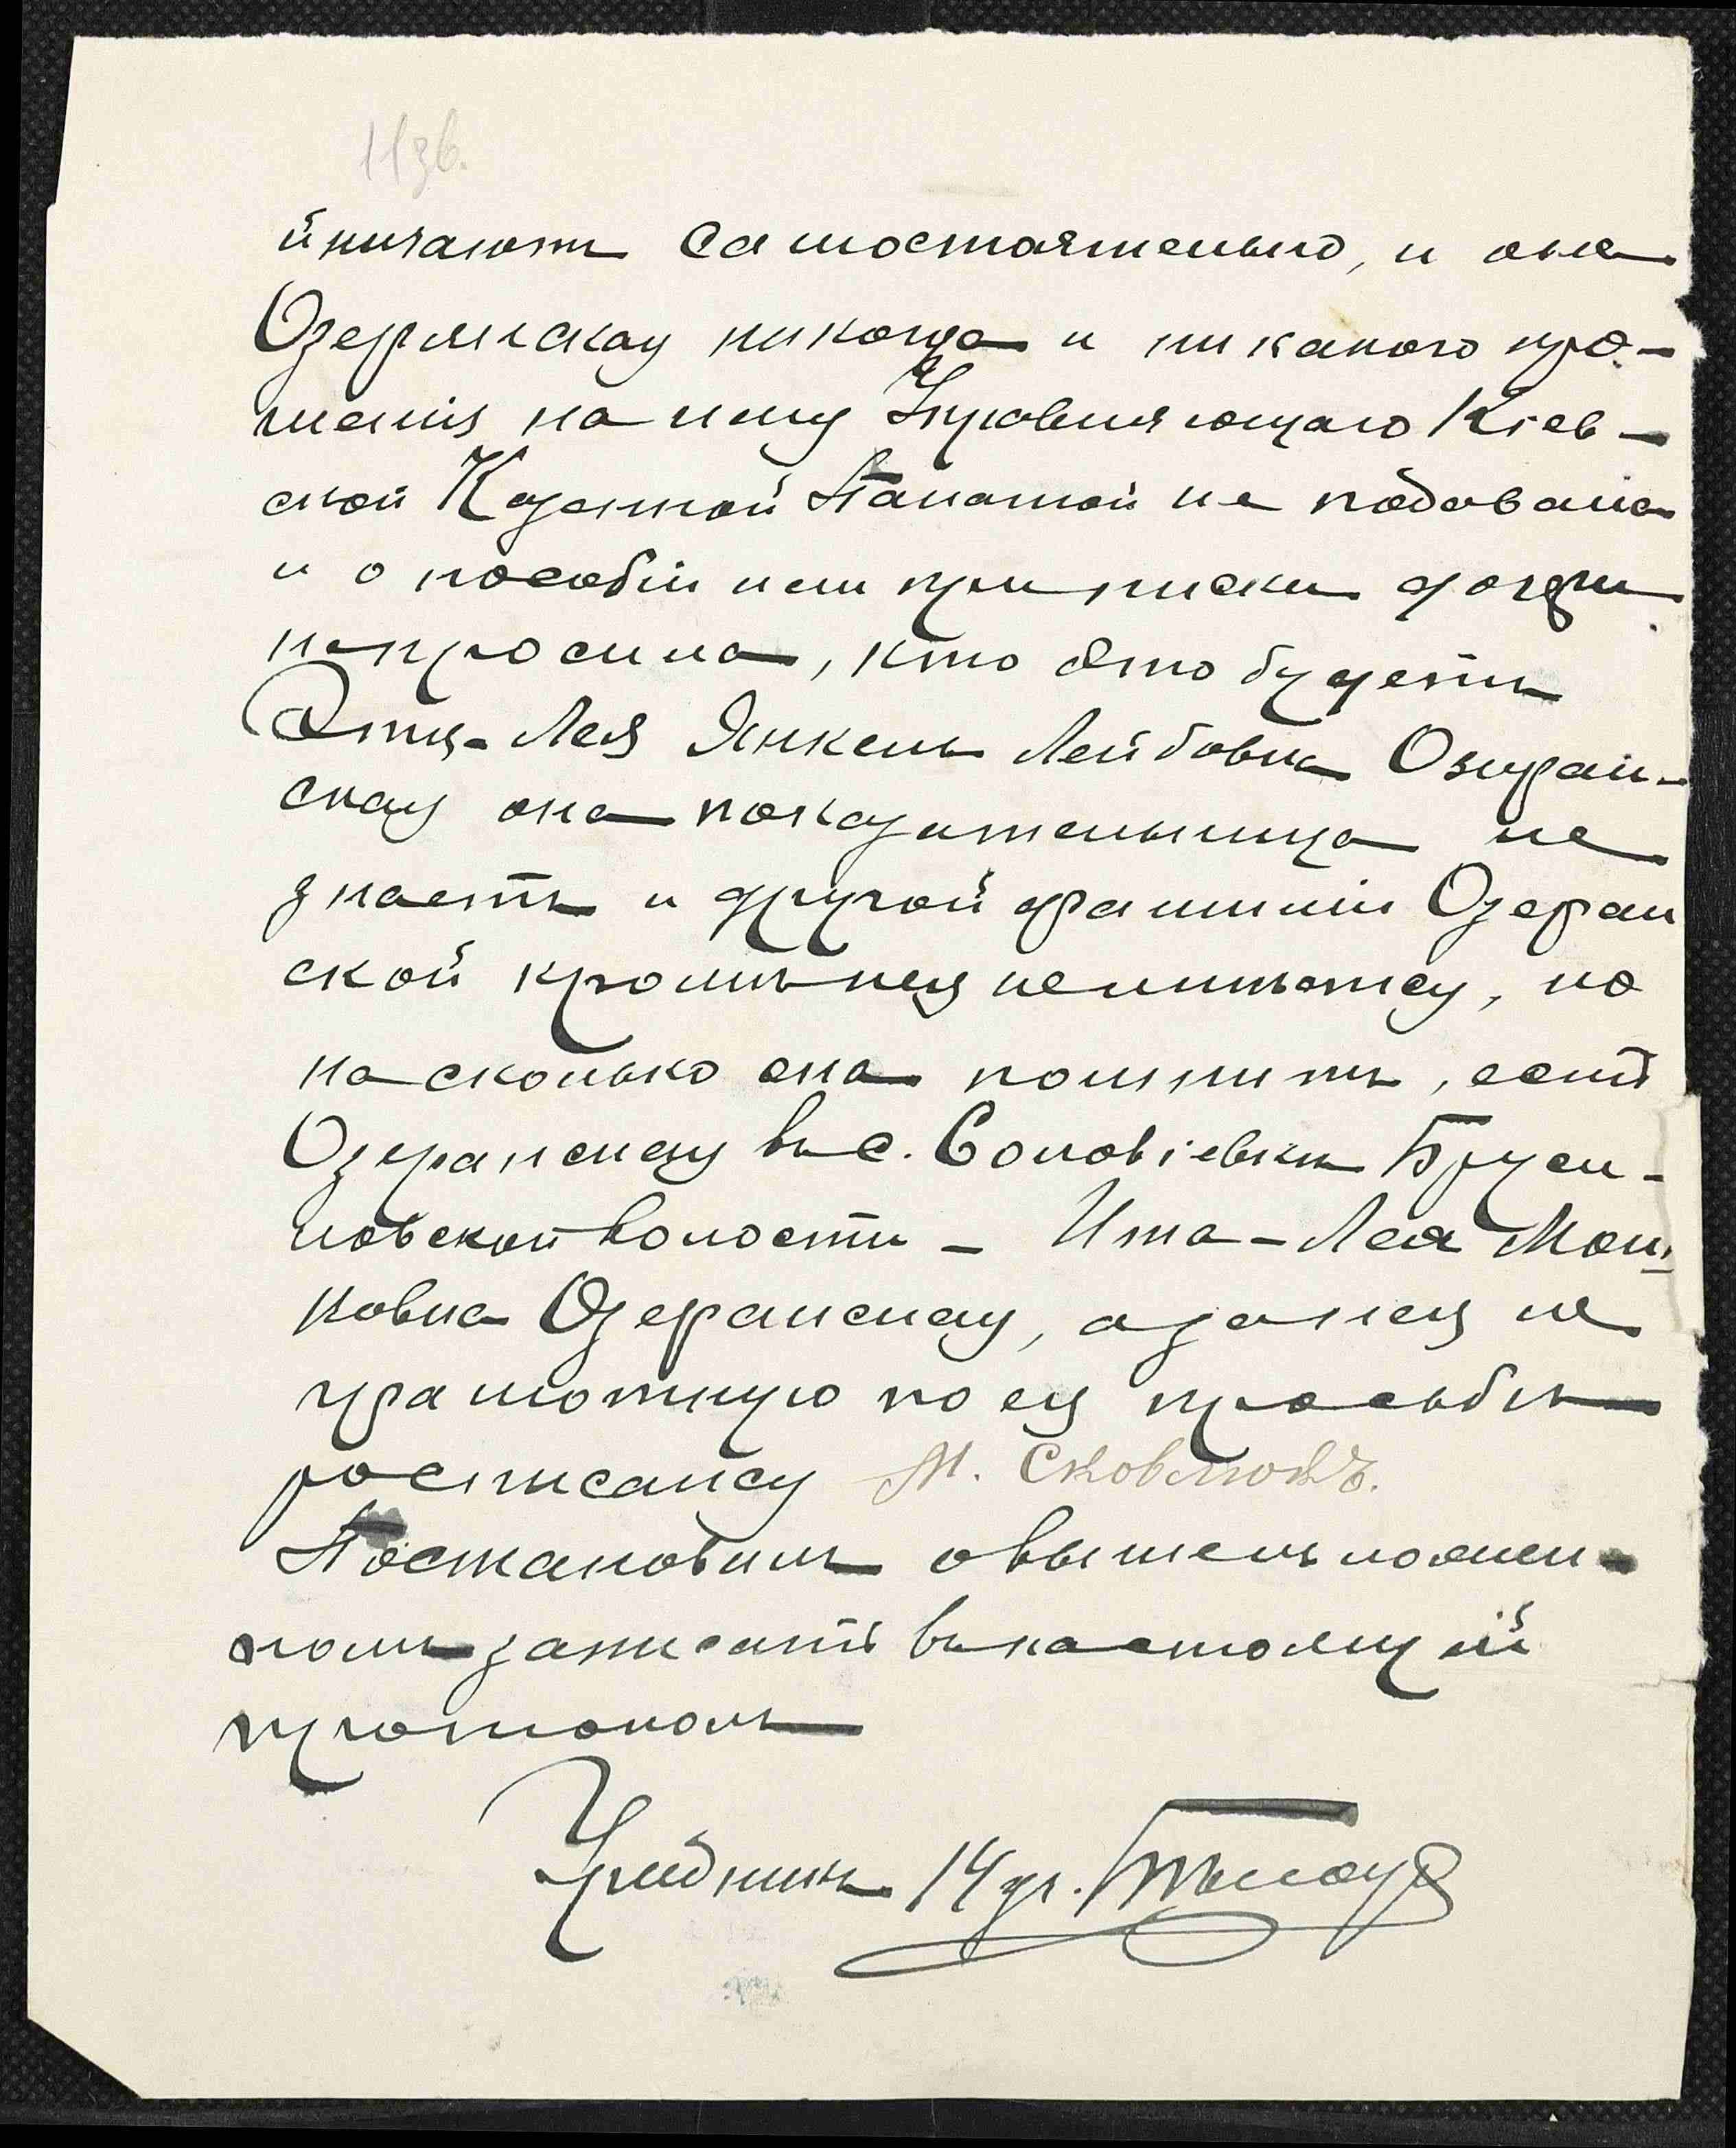 11зв.
йничаютъ самостоятельно, и она
Озерянская никогда и никакого про-
шенія на имя Управляющаго Кіев-
ской Казенной Палатой не подавала
и о пособіи или приписки
непросила, кто это будетъ
Этя-Лея Янкель Лейбовна Озиран-
ская она показательница не
знаетъ и другой фамиліи Озеран
ской кромѣ нея неимѣется, но
на сколько она помнитъ, есть
Озеранская въ с. Соловіевкѣ Бруси-
ловской волости - Ита-Лея Мош-
ковна Озеранская, а за нея не
грамотную по ея просьбѣ
росписался М.
Постановилъ о вышеизложен-
номъ записать въ настоящій
протоколъ
Урядникъ 14 уч.